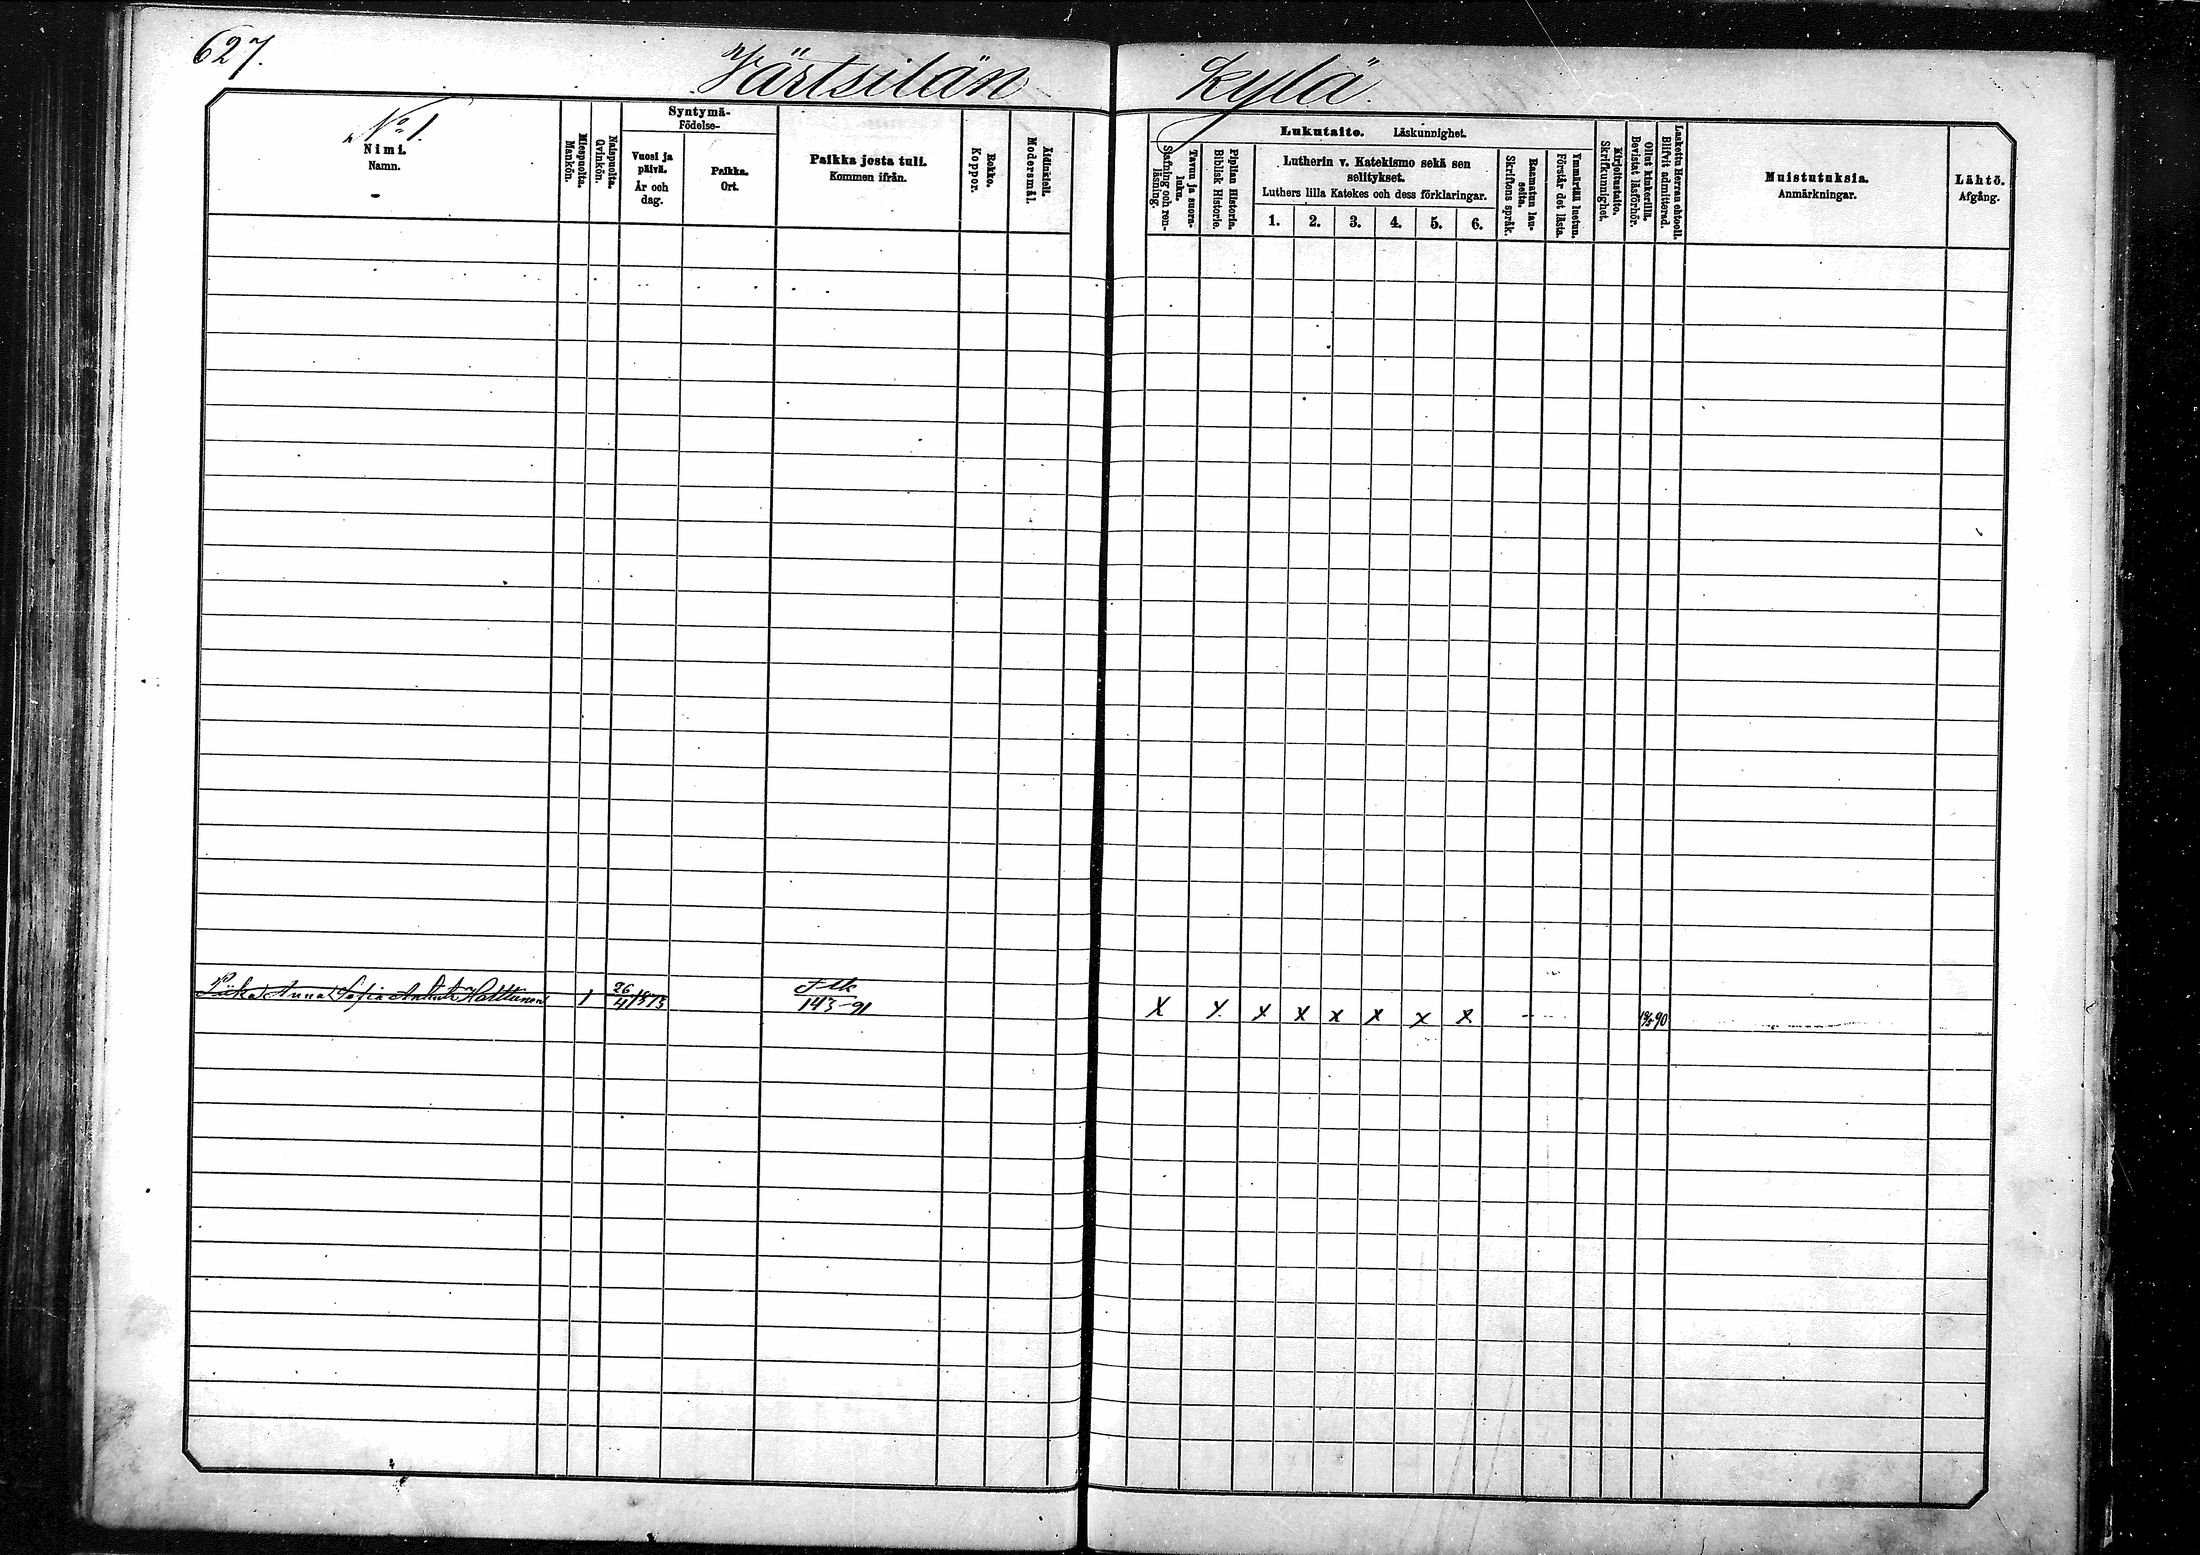 627.
Värtsilän kylä.
No 1.
Nimi.
Namn.
Miespuolta.
Mankön.
Naispuolta.
Qvinkön.
Syntymä-
Födelse-
Vuosi ja
päivä.
År och
dag.
Paikka.
Ort.
Paikka josta tuli.
Kommen ifrån.
Rokko.
Koppor.
Äidinkieli.
Modersmål.
Lukutaito. Läskunnighet.
Tavuu ja suora-
luku.
Stafning och ren-
läsning.
Piplian Historia.
Biblisk Historie.
Lutherin v. Katekismo sekä sen
selitykset.
Luthers lilla Katekes och dess förklaringar.
1. 2. 3. 4. 5. 6.
Raamatun lau-
seita.
Skriftens språk.
Ymmärtää luetun.
Förstår det lästa.
Kirjoitustaito.
Skrifkunnighet.
Ollut kinkerillä.
Bevistat läsförhör.
Laskettu Herran ehtooll.
Blifvit admitterad.
Muistutuksia.
Anmärkningar.
Lähtö.
Afgång.
Piika Anna Sofia Hatttunen 1 26/4 1873 143-91
X X X X X X X X 90